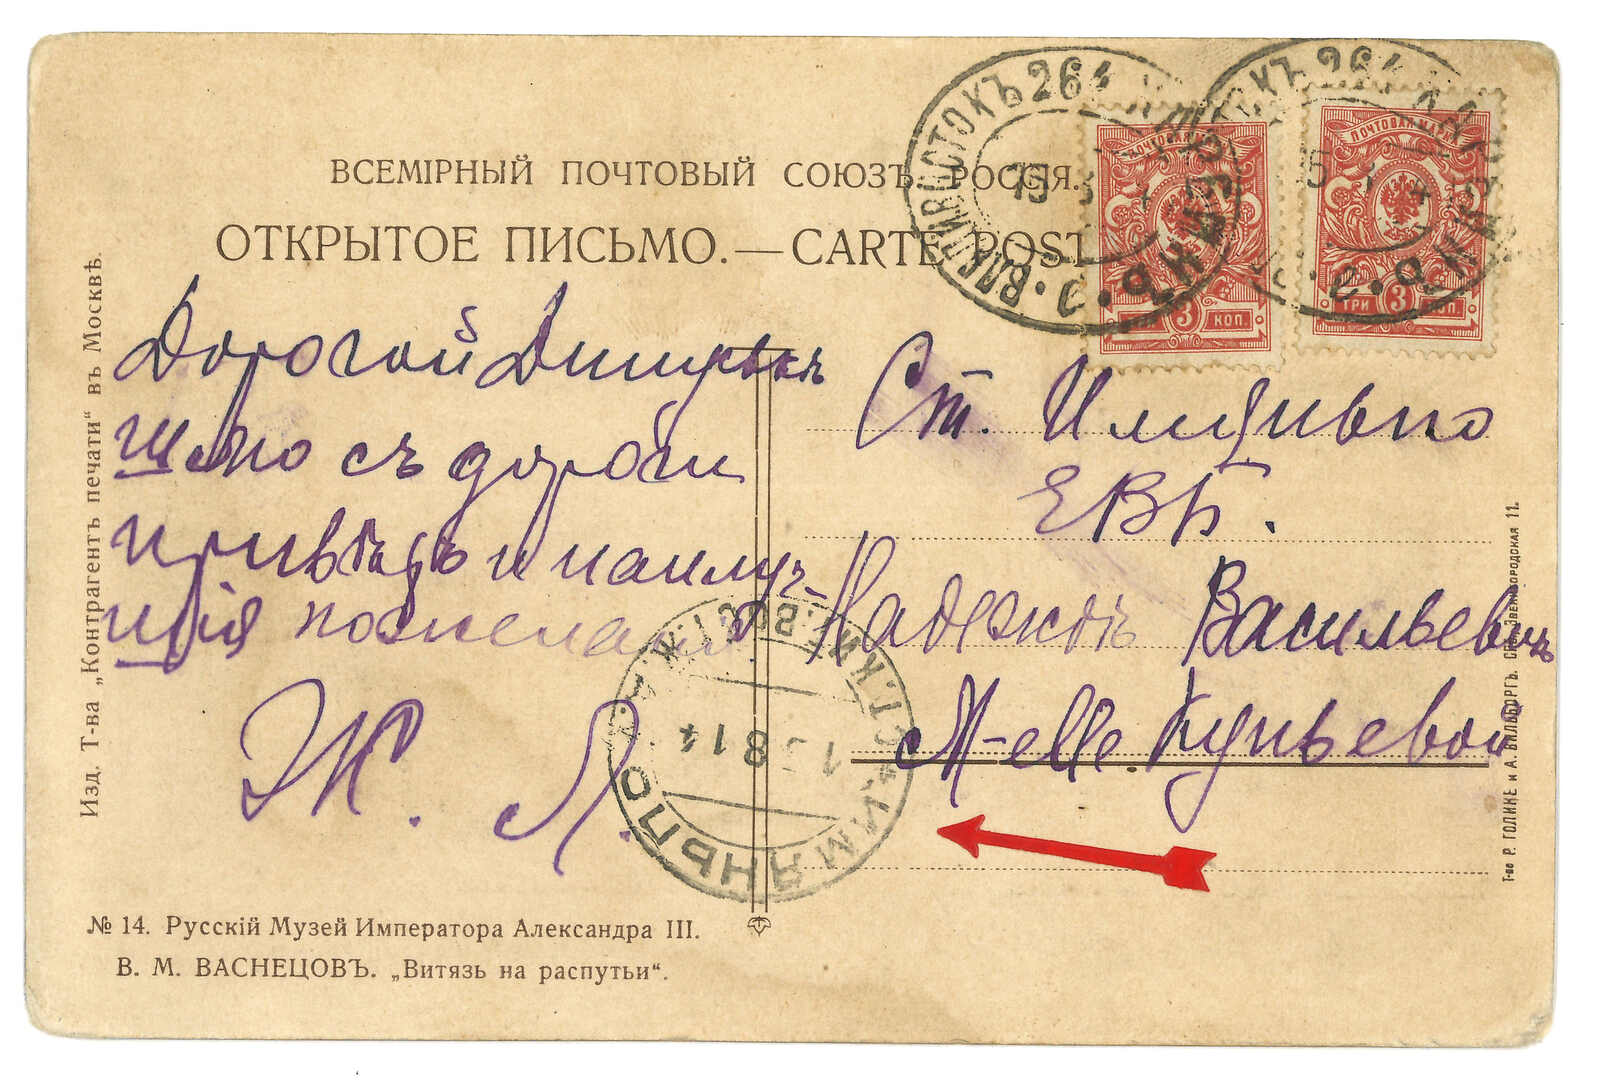 ВСЕМІРНЫЙ ПОЧТОВЫЙ СОЮЗЪ. РОССІЯ.
ОТКРЫТОЕ ПИСЬМО. — CARTE POST
ВЛАДИВОСТОКЪ 264
15
ПОЧТОВАЯ МАРКА
3 КОП.
ПОЧТОВАЯ МАРКА
ТРИ 3 КОП.
Дорогой
шлю съ дороги
привѣтъ и наилуч-
шія пожеланія
Ж. Л.
Ст. Имяньпо
КВЖД.
Надеждѣ Васильевнѣ
M-elle.
ИМЯНЬПО
КИТ. ВОСТ.
8 14
Изд. Т-ва „Контрагентъ печати“ въ Москвѣ.
Т-во Р. ГОЛИКЕ и А. ВИЛЬБОРГЪ. СПБ. ЗВЕНИГОРОДСКАЯ 11.
№ 14. Русскій Музей Императора Александра III.
В. М. ВАСНЕЦОВЪ. „Витязь на распутьи“.